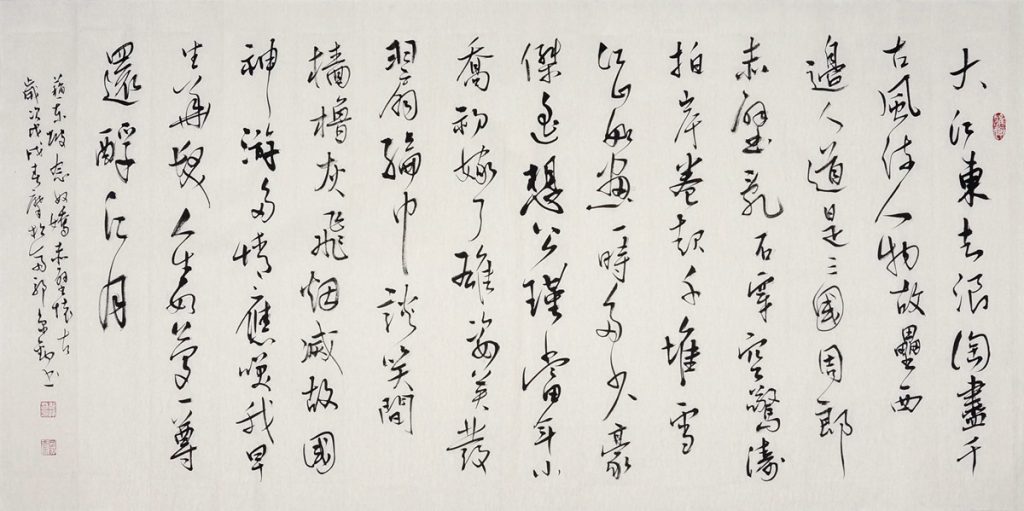 大江東去浪淘盡千
古風流人物故壘西
邊人道是三國周郎
赤壁亂石穿空驚濤
拍岸卷起千堆雪
江山如畫一時多少豪
傑遙想公瑾當年小
喬初嫁了雄姿英發
羽扇綸巾談笑間
檣櫓灰飛烟滅故國
神游多情應笑我早
生華髮人生如夢一尊
還酹江月
蘇東坡念奴嬌赤壁懷古
歲次戊戌春書